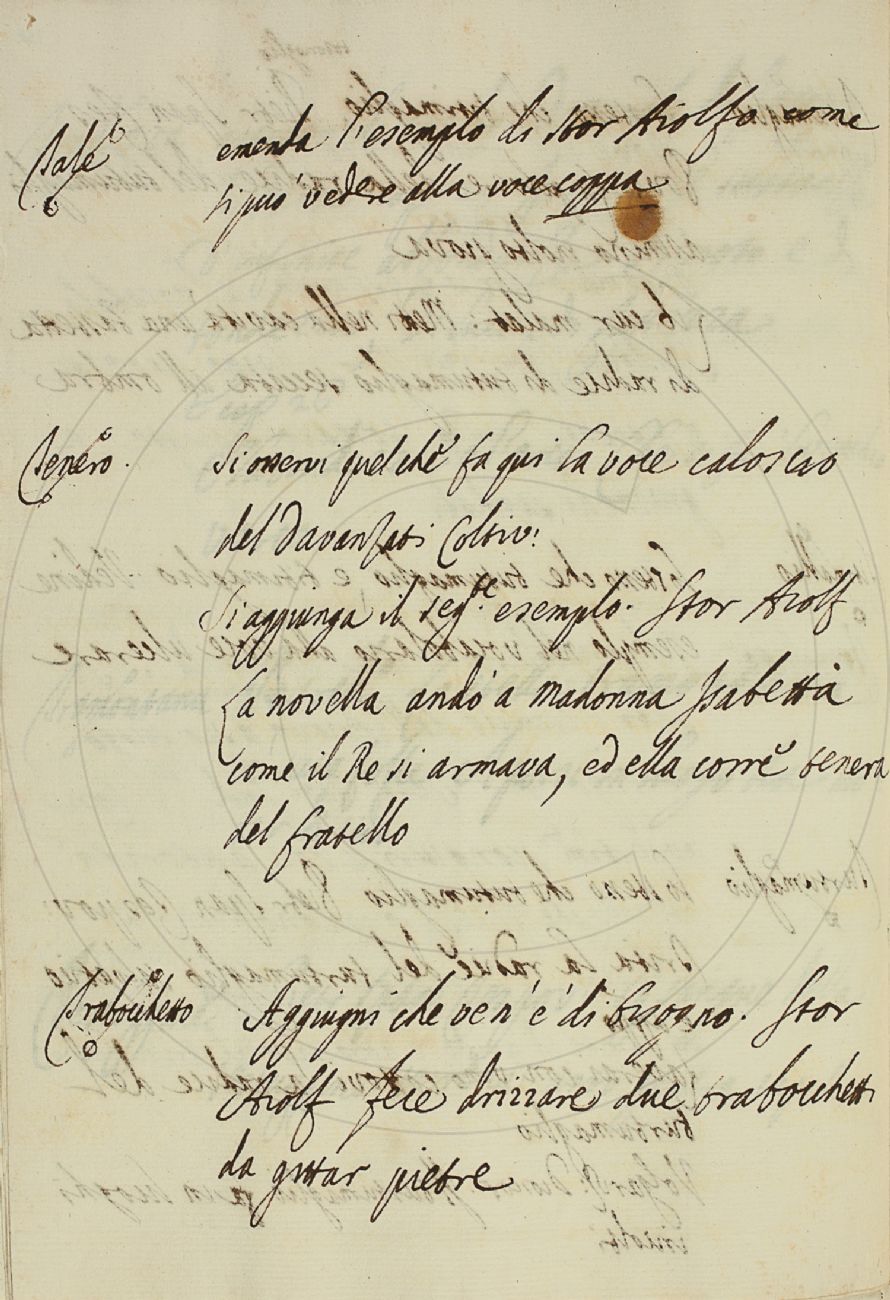 Tale ementa l'esempio di Stor Aiolfo come
si può vedere alla voce coppa
Tenero. Si osservi quel chè fa qui la voce caloscio
del Davanzati Coltiv:
Si aggiunga il seg.te esempio. Stor Aiolf
La novella andò a madonna Isabetta
come il Re si armava, ed ella corrè tenera
del fratello
Trabocchetto Aggiugni che ven' è di bisogno. Stor
Aiolf fece drizzare due trabocchetti
da gittar pietre